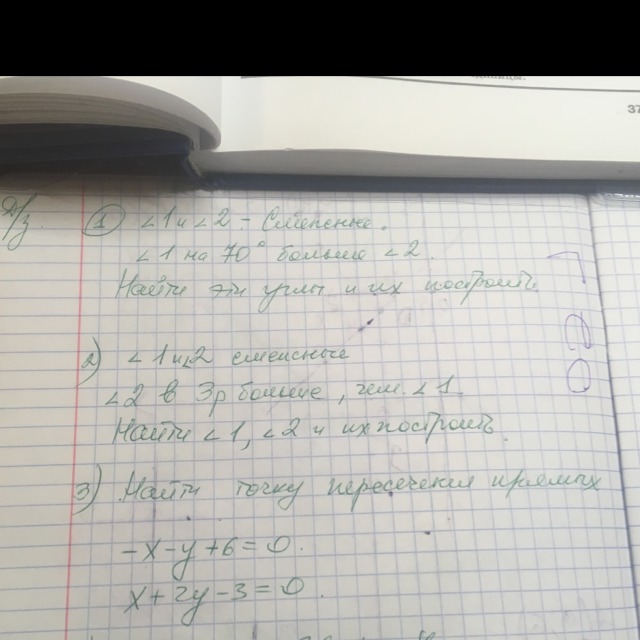 37
д/з.
1) ∠1 и ∠2 - смежные.
∠1 на 70° больше ∠2.
Найти эти углы и их построить
2) ∠1 и ∠2 смежные
∠2 в 3р больше, чем ∠1.
Найти ∠1, ∠2 и их построить.
3) Найти точку пересечения прямых
-x-y+6=0.
x+2y-3=0